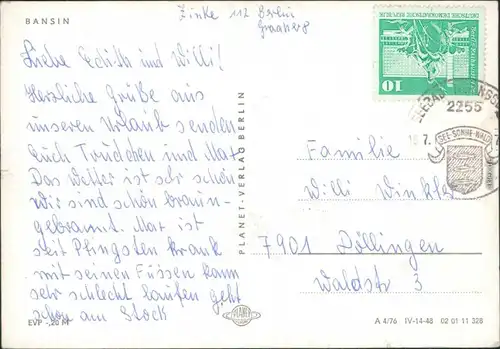 BANSIN
Zinke 112 Berlin
Liebe Edith und Willi!
Herzliche Grüße aus
unseren Urlaub senden
Euch Trudchen und Max
Das Wetter ist sehr schön
wir sind schön braun-
gebrannt. Max ist
seit Pfingsten krank
mit seinen Füssen kann
sehr schlecht laufen geht
schon am Stock
EVP -,20 M
PLANET-VERLAG BERLIN
PLANET
DEUTSCHE DEMOKRATISCHE REPUBLIK
10
2255
7.
SEE-SONNE-WALD
Familie
Willi Winkler
7901 Döllingen
Waldstr 3
A 4/76 IV-14-48 02 01 11 328